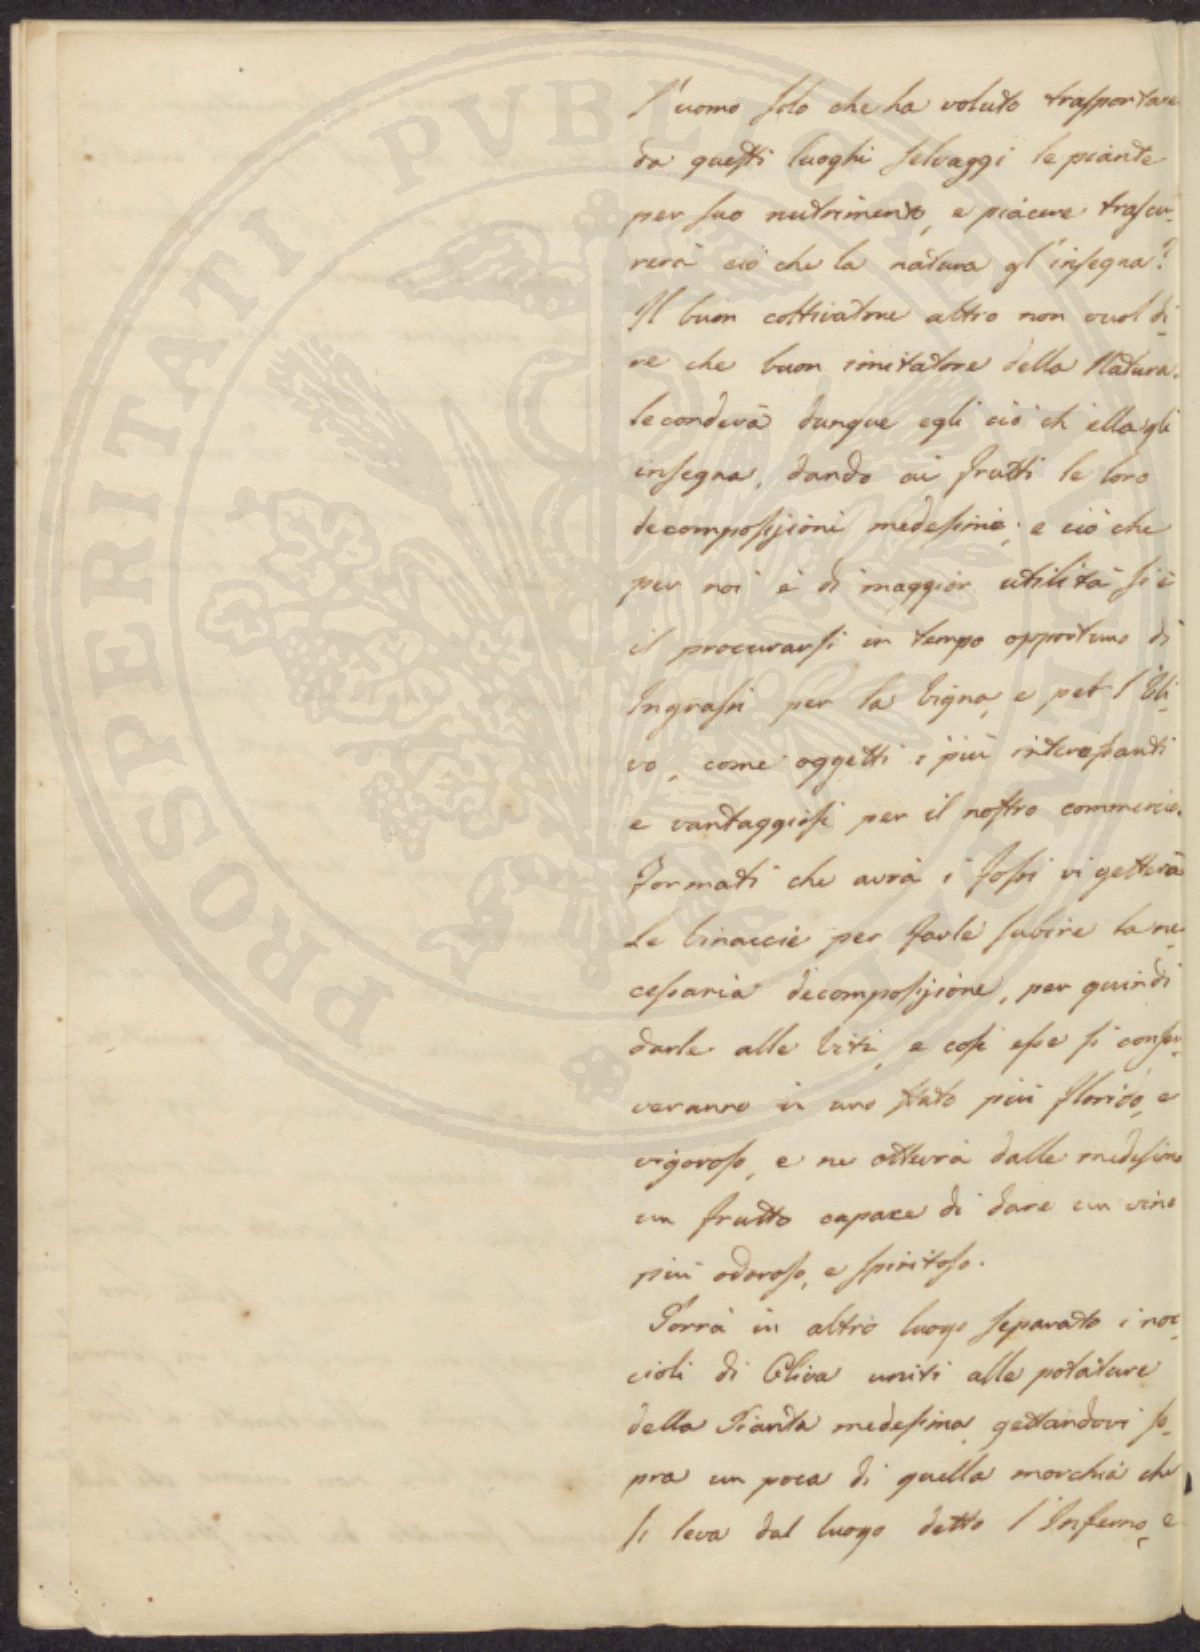 PROSPERITATI PUBLICAE AUGENDAE
l'uomo solo che ha voluto trasportare
da questi luoghi selvaggi le piante
per suo nutrimento, e piacere trascu-
rerà ciò che la natura gl'insegna?
Il buon coltivatore altro non vuol di-
re che buon imitatore della Natura.
Seconderà dunque egli ciò ch'ella gli
insegna, dando ai frutti le loro
decomposizioni medesime; e ciò che
per noi è di maggior utilità si è
il procurarsi in tempo opportuno di
Ingrassi per la Vigna, e pet l'Uli-
vo, come oggetti i più interessanti
e vantaggiosi per il nostro commercio.
Formati che avrà i fossi vi getterà
Le Vinaccie per farle subire la ne-
cessaria decomposizione, per quindi
darle alle Viti, e così esse si conser-
veranno in uno stato più florido, e
vigoroso, e ne otterrà dalle medesime
un frutto capace di dare un vino
più odoroso, e spiritoso.
Porrà in altro luogo separato i noc-
cioli di Oliva uniti alle potature
della Pianta medesima, gettandovi so-
pra un poca di quella morchia che
si leva dal luogo detto l'Inferno, e